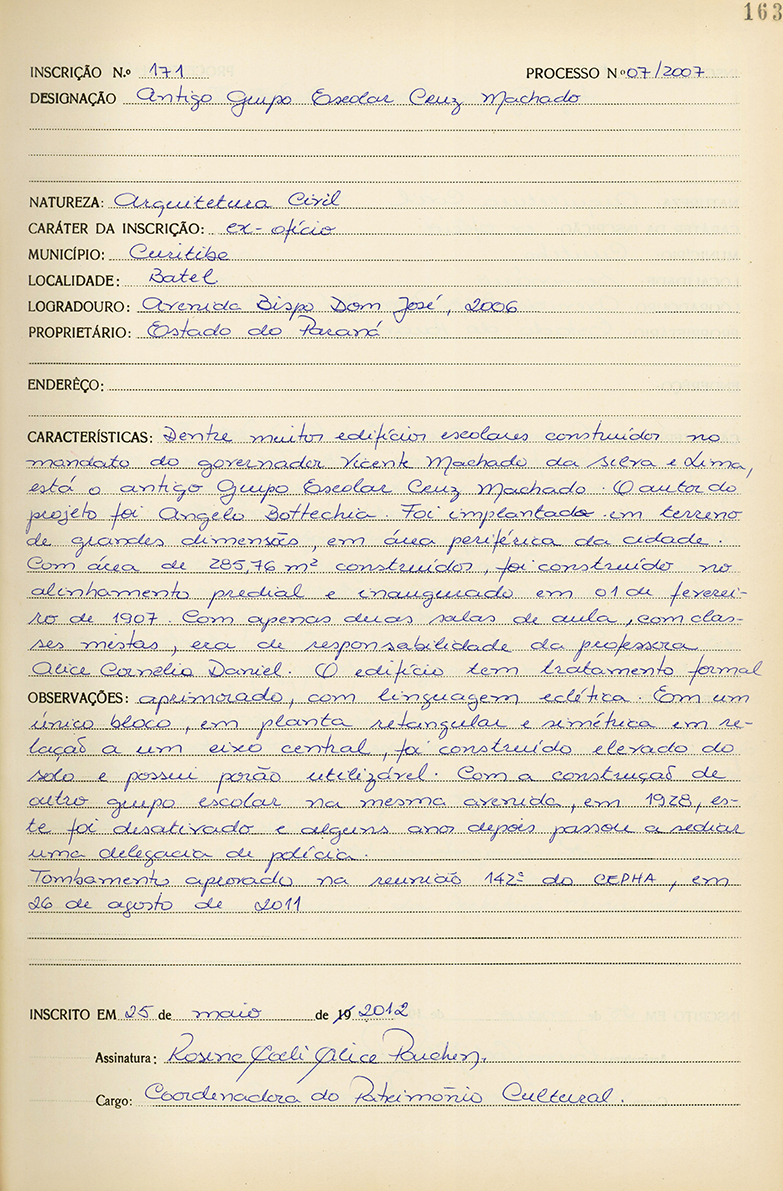 163
INSCRIÇÃO N.º 171 PROCESSO Nº 07/2007
DESIGNAÇÃO Antigo Grupo Escolar Cruz Machado
NATUREZA: Arquitetura Civil
CARÁTER DA INSCRIÇÃO: ex-ofício
MUNICÍPIO: Curitiba
LOCALIDADE: Batel
LOGRADOURO: Avenida Bispo Dom José, 2006
PROPRIETÁRIO: Estado do Paraná
ENDERÊÇO:
CARACTERÍSTICAS: Dentre muitos edifícios escolares construídos no
mandato do governador Vicente Machado da Silva e Lima,
está o antigo Grupo Escolar Cruz Machado. O autor do
projeto foi Angelo Bottechia. Foi implantado em terreno
de grandes dimensões, em área periférica da cidade.
Com área de 285,76 m² construídos, foi construído no
alinhamento predial e inaugurado em 01 de feverei-
ro de 1907. Com apenas duas salas de aula, com clas-
ses mistas, era de responsabilidade da professora
Alice Cornélia Daniel. O edifício tem tratamento formal
OBSERVAÇÕES: aprimorado, com linguagem eclética. Em um
único bloco, em planta retangular e simétrica em re-
lação a um eixo central, foi construído elevado do
solo e possui porão utilizável. Com a construção de
outro grupo escolar na mesma avenida, em 1928, es-
te foi desativado e alguns anos depois passou a sediar
uma delegacia de polícia.
Tombamento aprovado na reunião 142ª do CEPHA, em
26 de agosto de 2011
INSCRITO EM 25 de maio de 19 2012
Assinatura: Rosina Alice
Cargo: Coordenadora do Patrimônio Cultural.